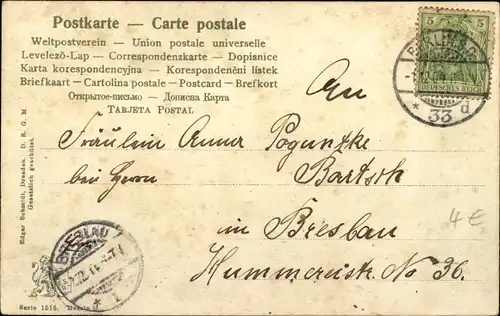 Postkarte — Carte postale
Weltpostverein — Union postale universelle
Levelező-Lap — Correspondenzkarte — Dopisnice
Karta korespondencyjna — Korespondenční lístek
Briefkaart — Cartolina postale — Postcard — Brefkort
Открытое-письмо — Дописна Карта
TARJETA POSTAL
5 5
DEUTSCHES REICH
BERLIN
* 33 d
An
Fräulein Anna Poguntke
bei Herrn Bartsch
in Breslau
Hummereistr. No 36.
4€
BRESLAU
* 1
Edgar Schmidt, Dresden. D. R. G. M
Gesetzlich geschützt.
Serie 1515.